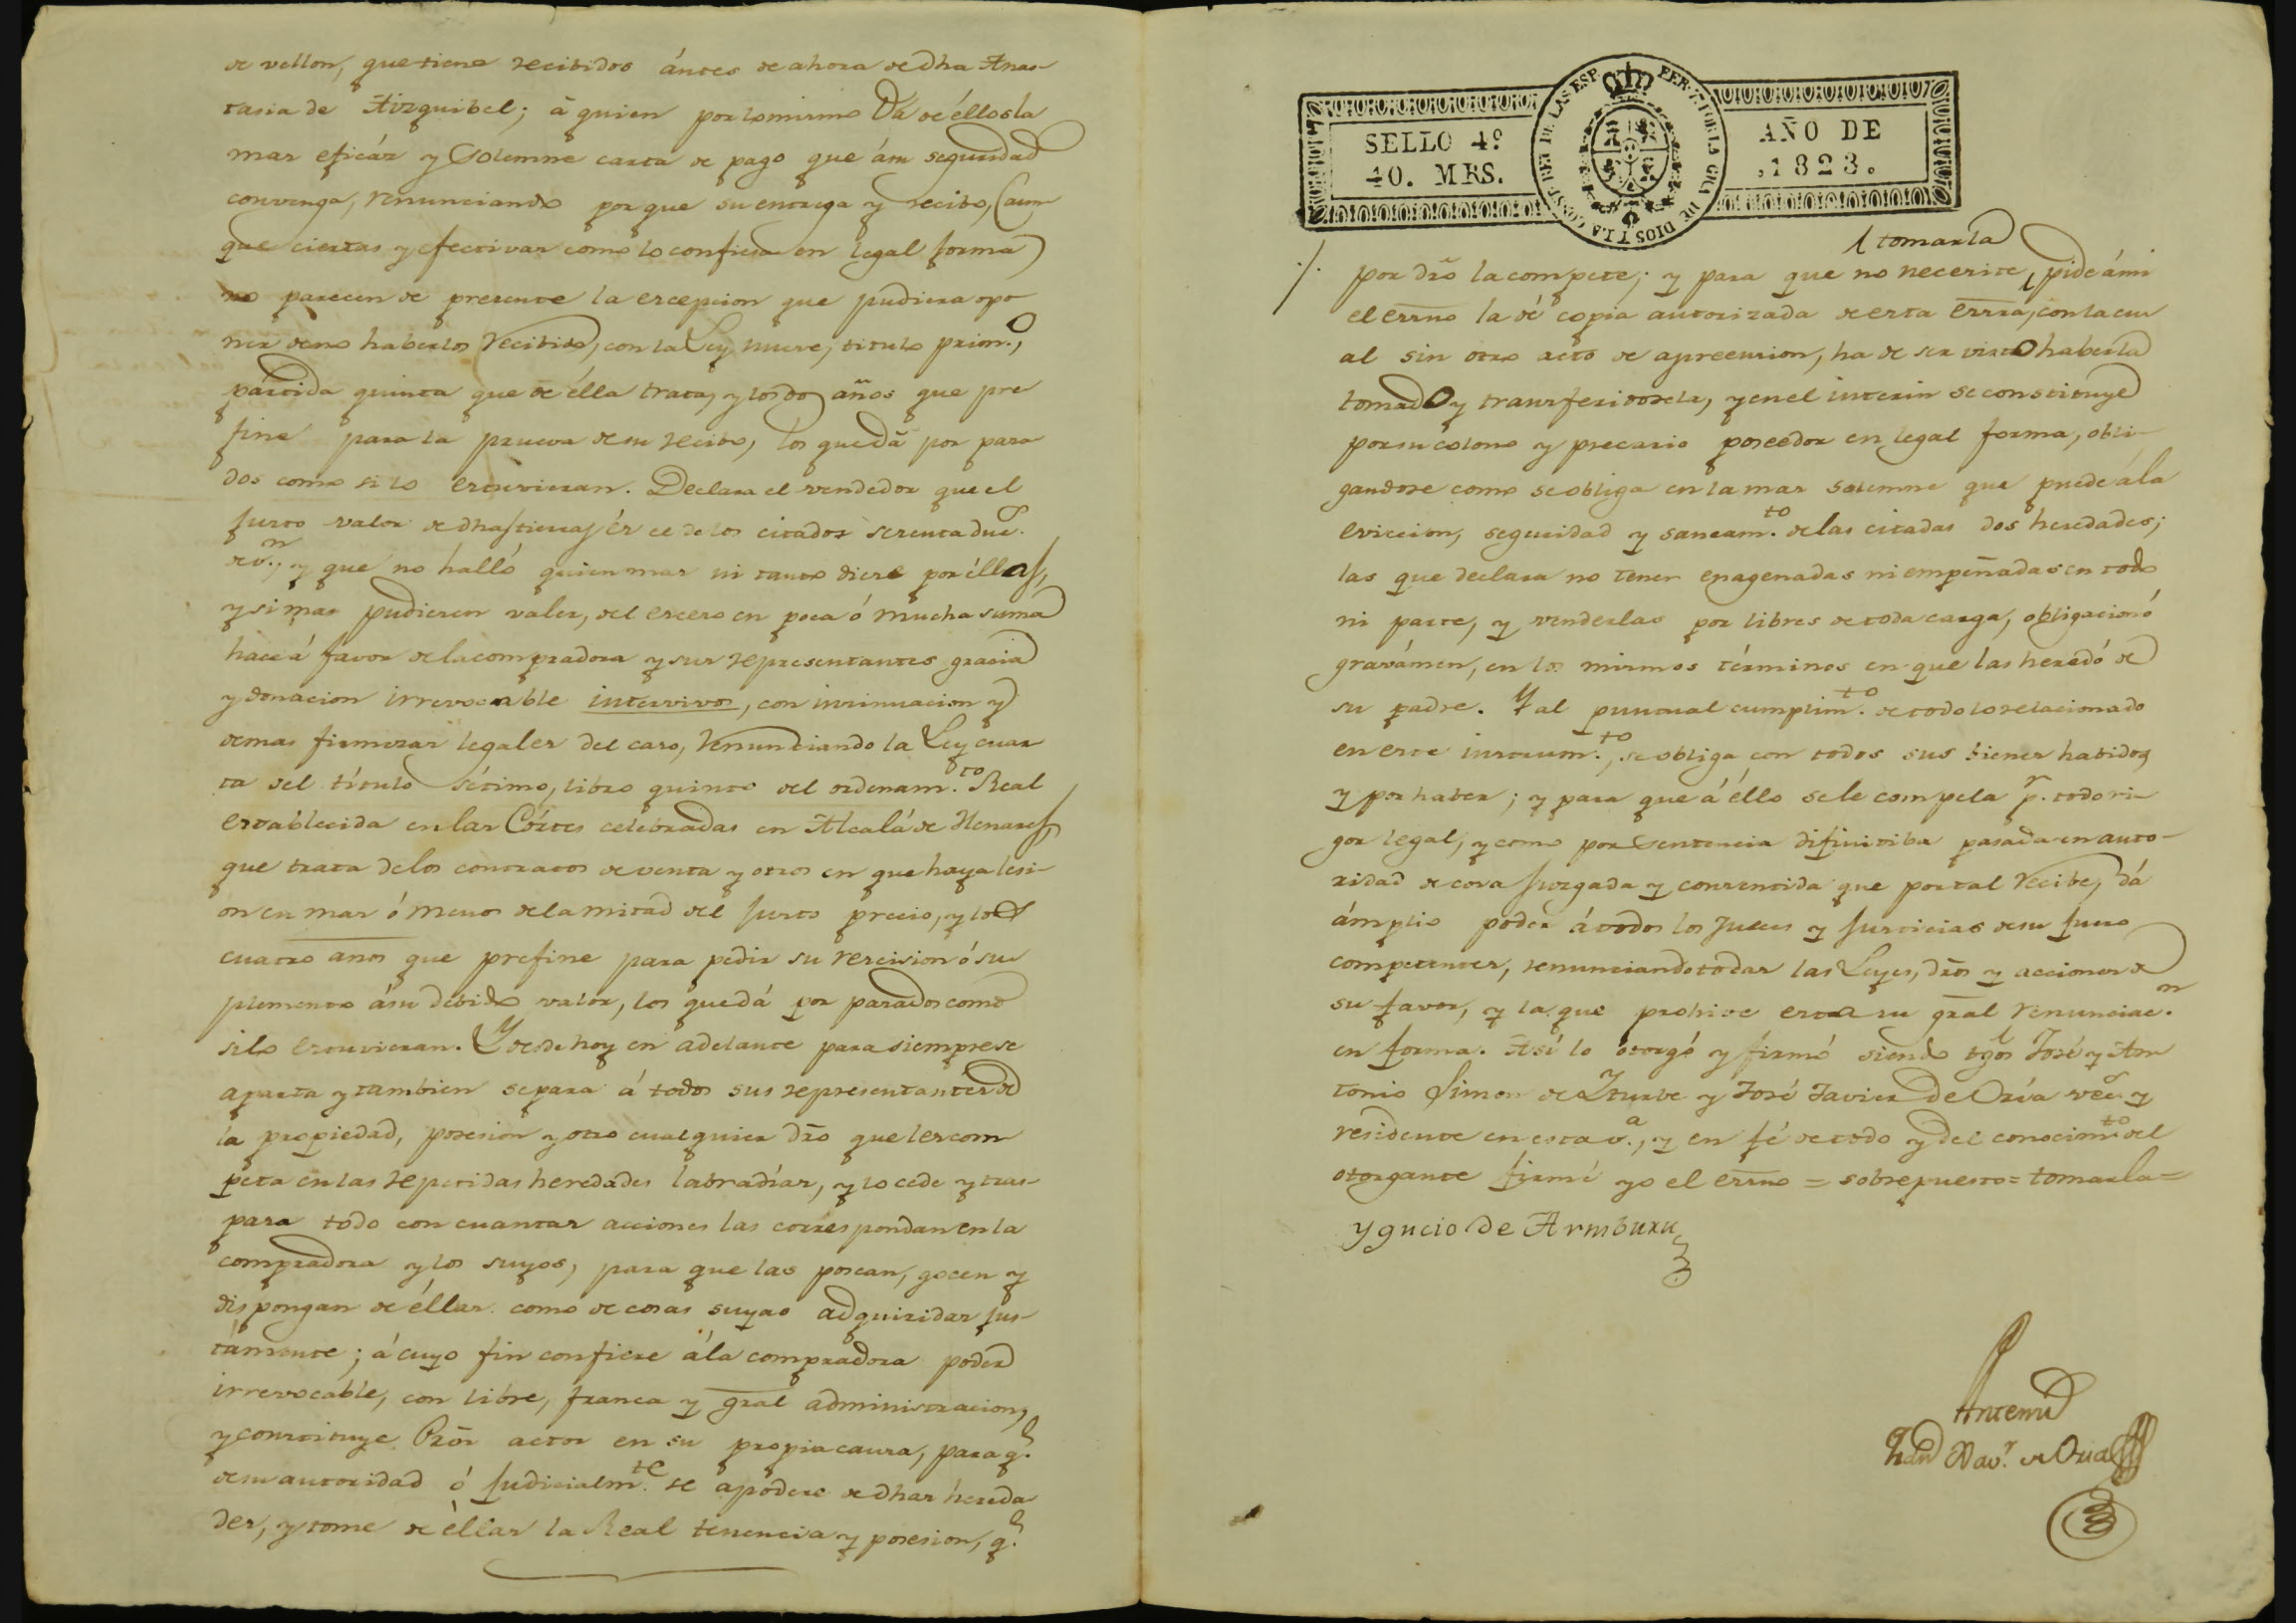 de vellon, que tiene recibidos ántes de ahora de dha Anas-
tasia de Aizquibel; á quien por lo mismo Dá de éllos la
mas eficáz y solemne carta de pago que á su seguridad
convenga, renunciando por que su entrega y recibo, (aun
que ciertas y efectivas como lo confiesa en legal forma)
no parecen de presente la excepcion que pudiera opo
ner de no haberlos recibido, con la Ley nueve, titulo prim.o,
partida quinta que de élla trata, y los dos años que pre
fine para la prueva de su recibo, los que dá por pasa
dos como si lo estuvieran. Declara el vendedor que el
justo valor de dhas tierras és el de los citados sesenta duc.s
de v.n, y que no halló quien mas ni tanto diese por éllas,
y si mas pudieren valer, del exceso en poca ó mucha suma
hace á favor de la compradora y sus representantes gracia
y donacion irrevocable intervivos, con insinuacion y
demas firmezas legales del caso, renunciando la Ley cuar
ta del título sétimo, libro quinto del ordenam.to Real
establecida en las Córtes celebradas en Alcalá de Henares,
que trata de los contratos de venta y otros en que haya lesi-
on en mas ó menos de la mitad del justo precio, y los
cuatro años que prefine para pedir su rescision ó su
plemento á su debido valor, los que dá por pasados como
si lo estuvieran. Y desde hoy en adelante para siempre se
aparta y tambien separa á todos sus representantes de
la propiedad, posesion y otro cualquier dro que les com
peta en las repetidas heredades labradías, y lo cede y tras-
pasa todo con cuantas acciones las correspondan en la
compradora y los suyos, para que las posean, gocen y
dispongan de éllas como de cosas suyas adquiridas jus-
tamente; á cuyo fin confiere á la compradora poder
irrevocable, con libre, franca y gral administracion,
y constituye Prór actor en su propia causa, para q.e
de su autoridad ó judicialm.te se apodere de dhas hereda
des, y tome de éllas la Real tenencia y posesion, q.e
SELLO 4º
40. MRS.
AÑO DE
1823.
REY DE LAS ESP. FER. 7. POR LA GRA. DE DIOS Y LA CONST.
tomarla
por dro la compete; y para que no necesite pide á mi
el essno la dé copia autorizada de esta essra, con la cu
al sin otro acto de apreension, ha de ser visto haberla
tomado y transferidosela, y en el interin se constituye
por su colono y precario poseedor en legal forma, obli-
gandose como se obliga en la mas solemne que puede á la
eviccion, seguridad y saneam.to de las citadas dos heredades;
las que declara no tener enagenadas ni empeñadas en todo
ni parte, y venderlas por libres de toda carga, obligacion ó
gravámen, en los mismos términos en que las heredó de
su padre. Y al puntual cumplim.to de todo lo relacionado
en este instrum.to, se obliga con todos sus bienes habidos
y por haber; y para que á éllo se le compela p.r todo ri-
gor legal, y como por sentencia difinitiba pasada en auto-
ridad de cosa juzgada y consentida que por tal recibe, dá
ámplio poder á todos los Jueces y Justicias de su fuero
competentes, renunciando todas las Leyes, dros y acciones de
su favor, y la que prohive esta su gral renunciac.n
en forma. Así lo otorgó y firmó siendo tgos José y An
tonio Simon de Yturbe y José Javier de Oria vec.s y
residente en esta v.a, y en fé de todo y del conocim.to del
otorgante firmé yo el essno = sobrepuesto = tomarla =
Ygncio de Armburu
Antemi
Juan Xav.r de Oria